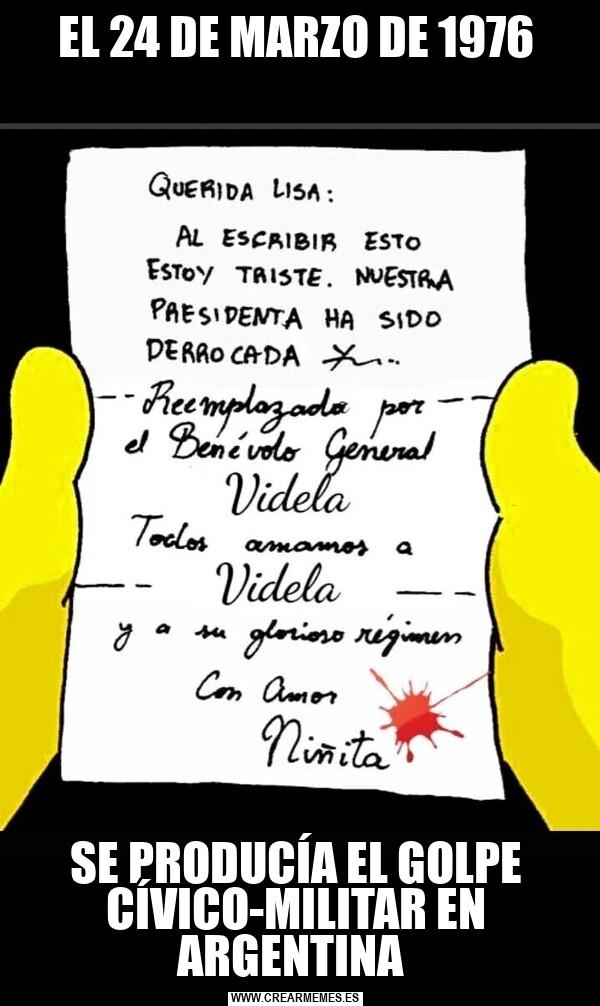 EL 24 DE MARZO DE 1976
QUERIDA LISA:
AL ESCRIBIR ESTO
ESTOY TRISTE. NUESTRA
PRESIDENTA HA SIDO
DERROCADA
Reemplazada por
el Benévolo General
Videla
Todos amamos a
Videla
y a su glorioso régimen
Con Amor
Niñita
SE PRODUCÍA EL GOLPE
CÍVICO-MILITAR EN
ARGENTINA
WWW.CREARMEMES.ES